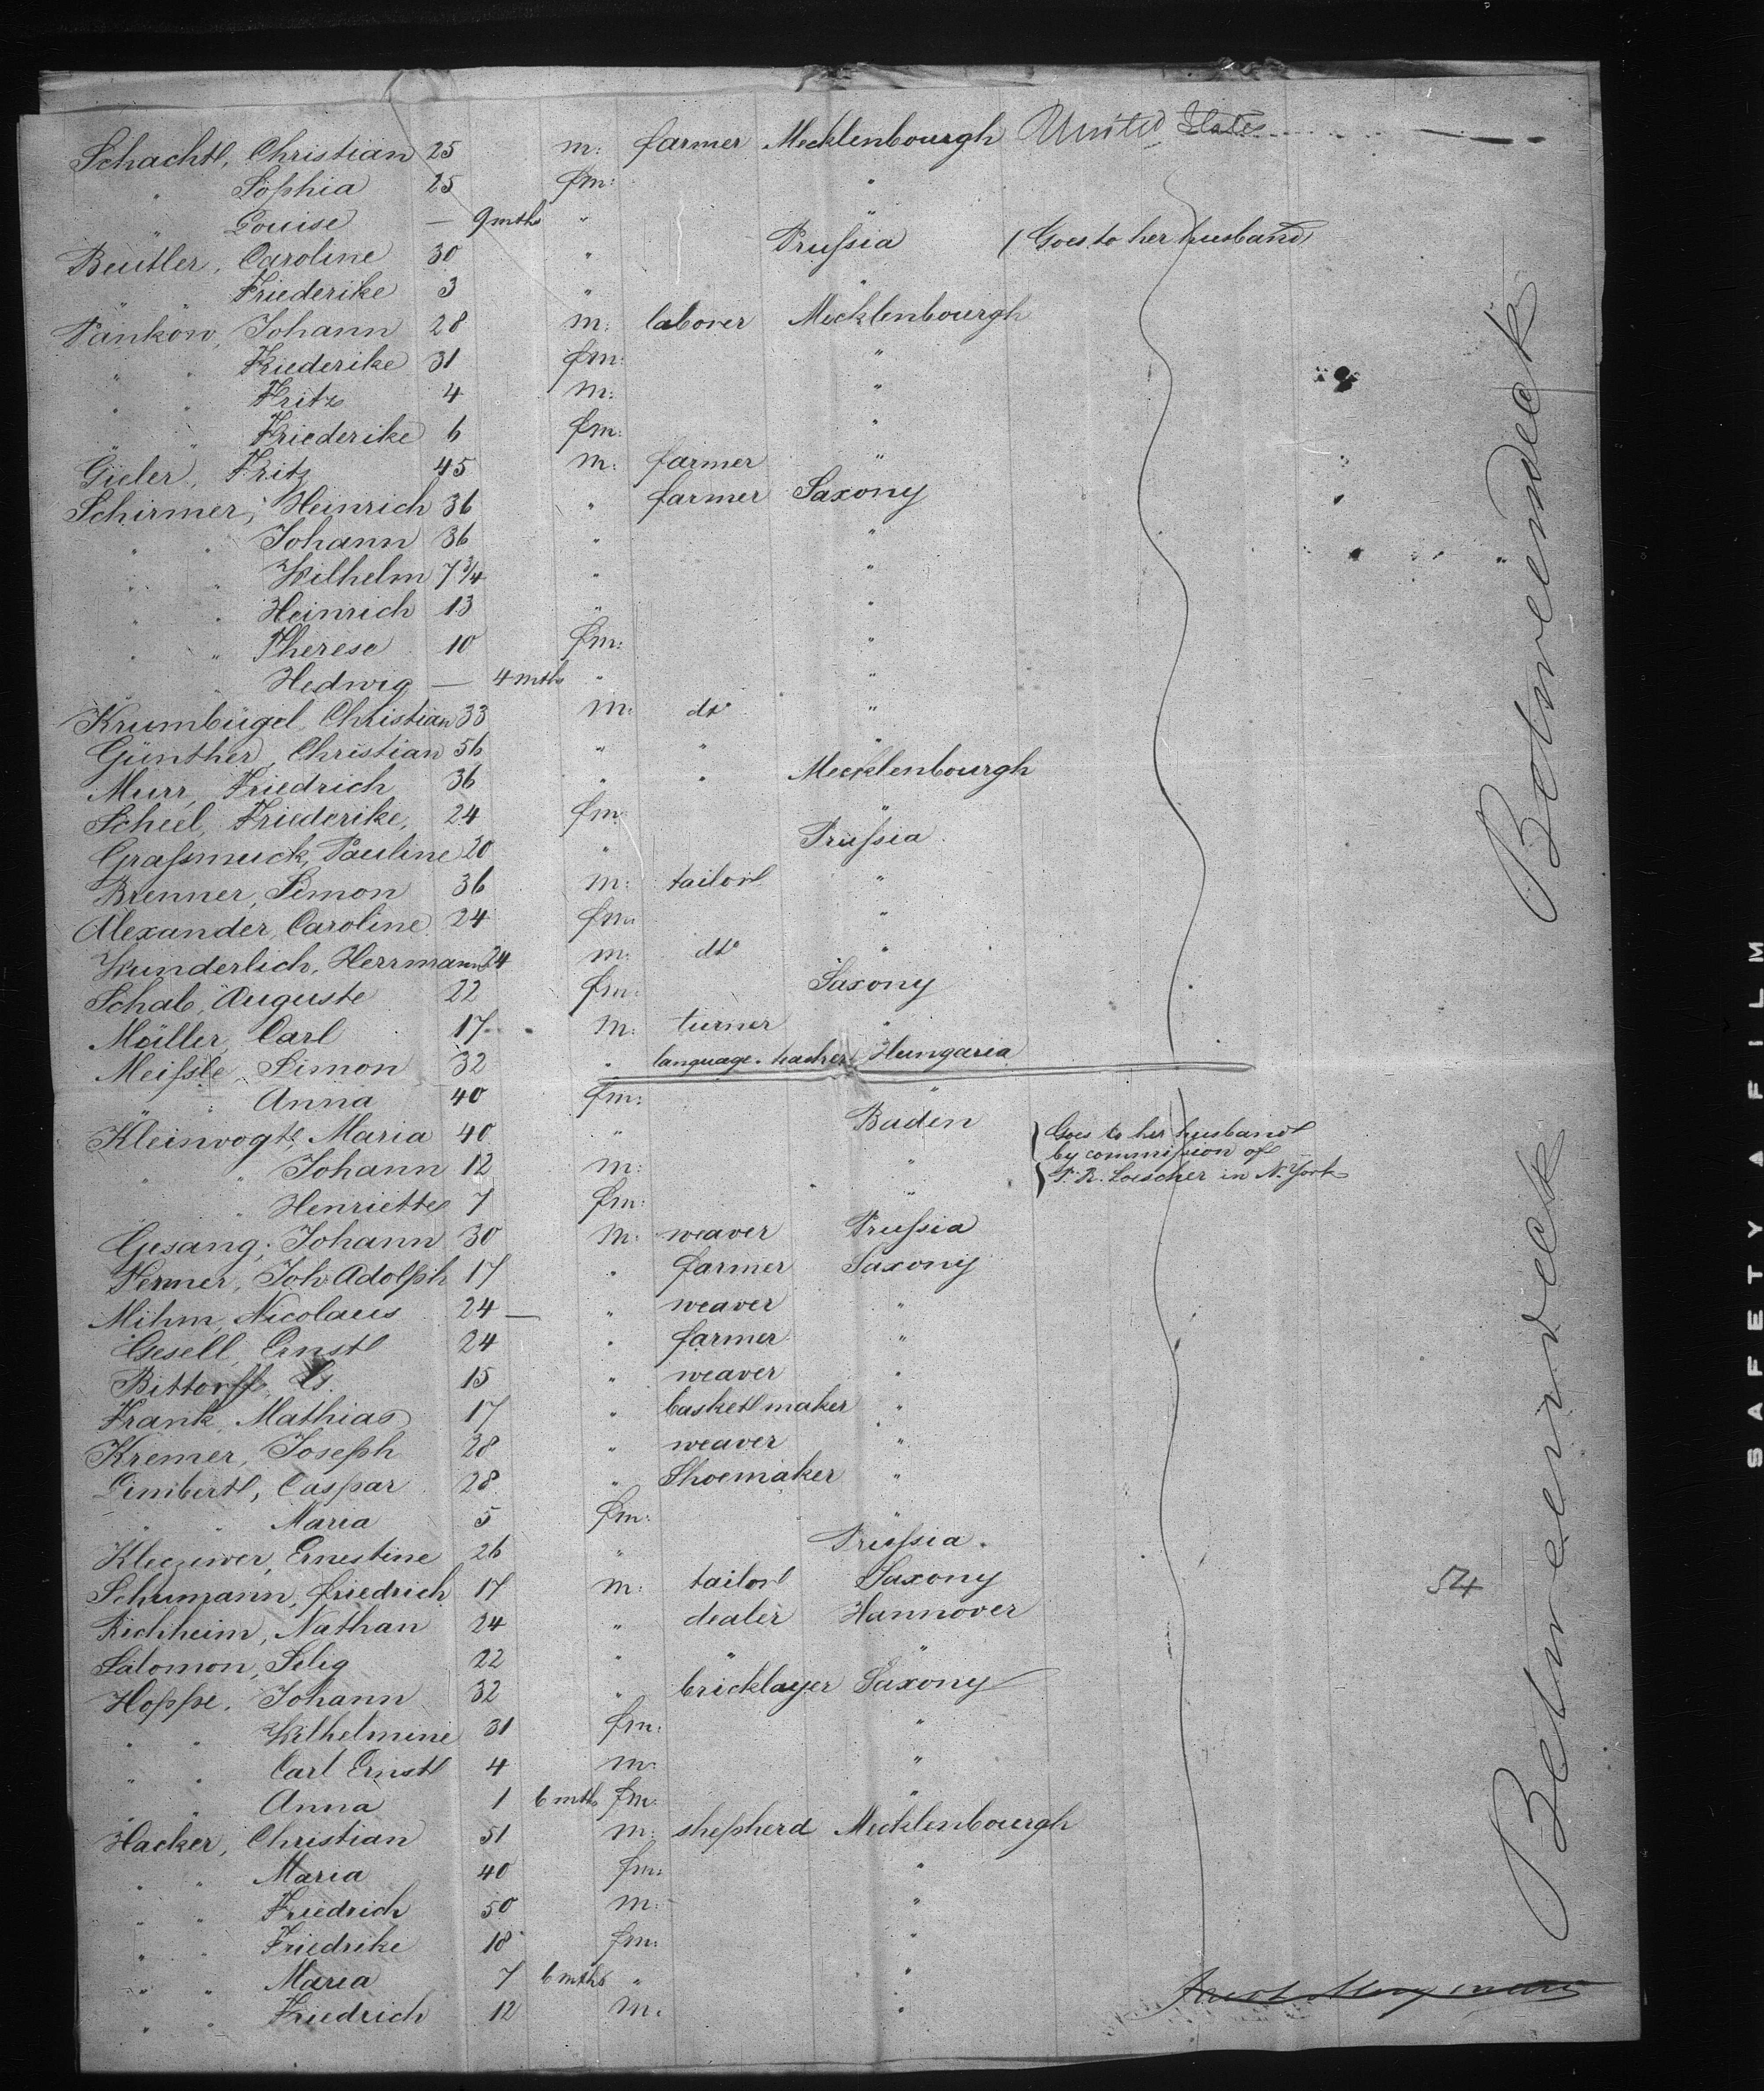 Schacht, Christian 25 m: farmer Mecklenbourgh United States
" Sophia 25 fm: "
" Louise — 9 mths " "
Beutler, Caroline 30 " Prussia (Goes to her husband)
" " Friederike 3 " "
Pankow, Johann 28 m: laborer Mecklenbourgh
" " Friederike 31 fm: "
" " Fritz 4 m: "
" " Friederike 6 fm: "
Gieler, Fritz 45 m: farmer "
Schirmer, Heinrich 36 " farmer Saxony
" " Johann 36 " "
" " Wilhelm 7 3/4 " "
" " Heinrich 13 " "
" " Therese 10 fm: "
" Hedwig — 4 mths " "
Krumbügel, Christian 33 m: do "
Günther, Christian 56 " " "
Murr, Friedrich 36 " " Mecklenbourgh
Scheel, Friederike, 24 fm: "
Grassmuck, Pauline 20 " Prussia
Brenner, Simon 36 m: tailor "
Alexander, Caroline 24 fm: "
Wunderlich, Herrmann 24 m: do "
Schab, Auguste 22 fm: Saxony
Müller, Carl 17 m: turner "
Meissle, Simon 32 " language-teacher Hungaria
" " Anna 40 fm: "
Kleinvogt, Maria 40 " Baden Goes to her husband
by commission of
" " Johann 12 m: " Loescher in N. York
" Henriette 7 fm: "
Gesang, Johann 30 m: weaver Prussia
Joh Adolph 17 " farmer Saxony
Mihm, Nicolaus 24 — " weaver "
Gesell, Ernst 24 " farmer "
Bittorff, 15 " weaver "
Frank, Mathias 17 " basket maker "
Kremer, Joseph 28 " weaver "
Limbert, Caspar 28 " Shoemaker "
" " Maria 5 fm: "
Ernestine 26 " Prussia.
Schumann, friedrich 17 m: tailor Saxony
Richheim, Nathan 24 " dealer Hannover
Salomon, Selig 22 " " "
Hoppe, Johann 32 " bricklayer Saxony
" " Wilhelmine 31 fm: "
" " Carl Ernst 4 m: "
" " Anna 1 6 mths fm: "
Hacker, Christian 51 m: shepherd Mecklenbourgh
" " Maria 40 fm: "
" " Friedrich 50 m: "
" " Friedrike 18 fm: "
" " Maria 7 6 mths " "
" " Friedrich 12 m: "
54
Between deck
Between deck
SAFETY FILM